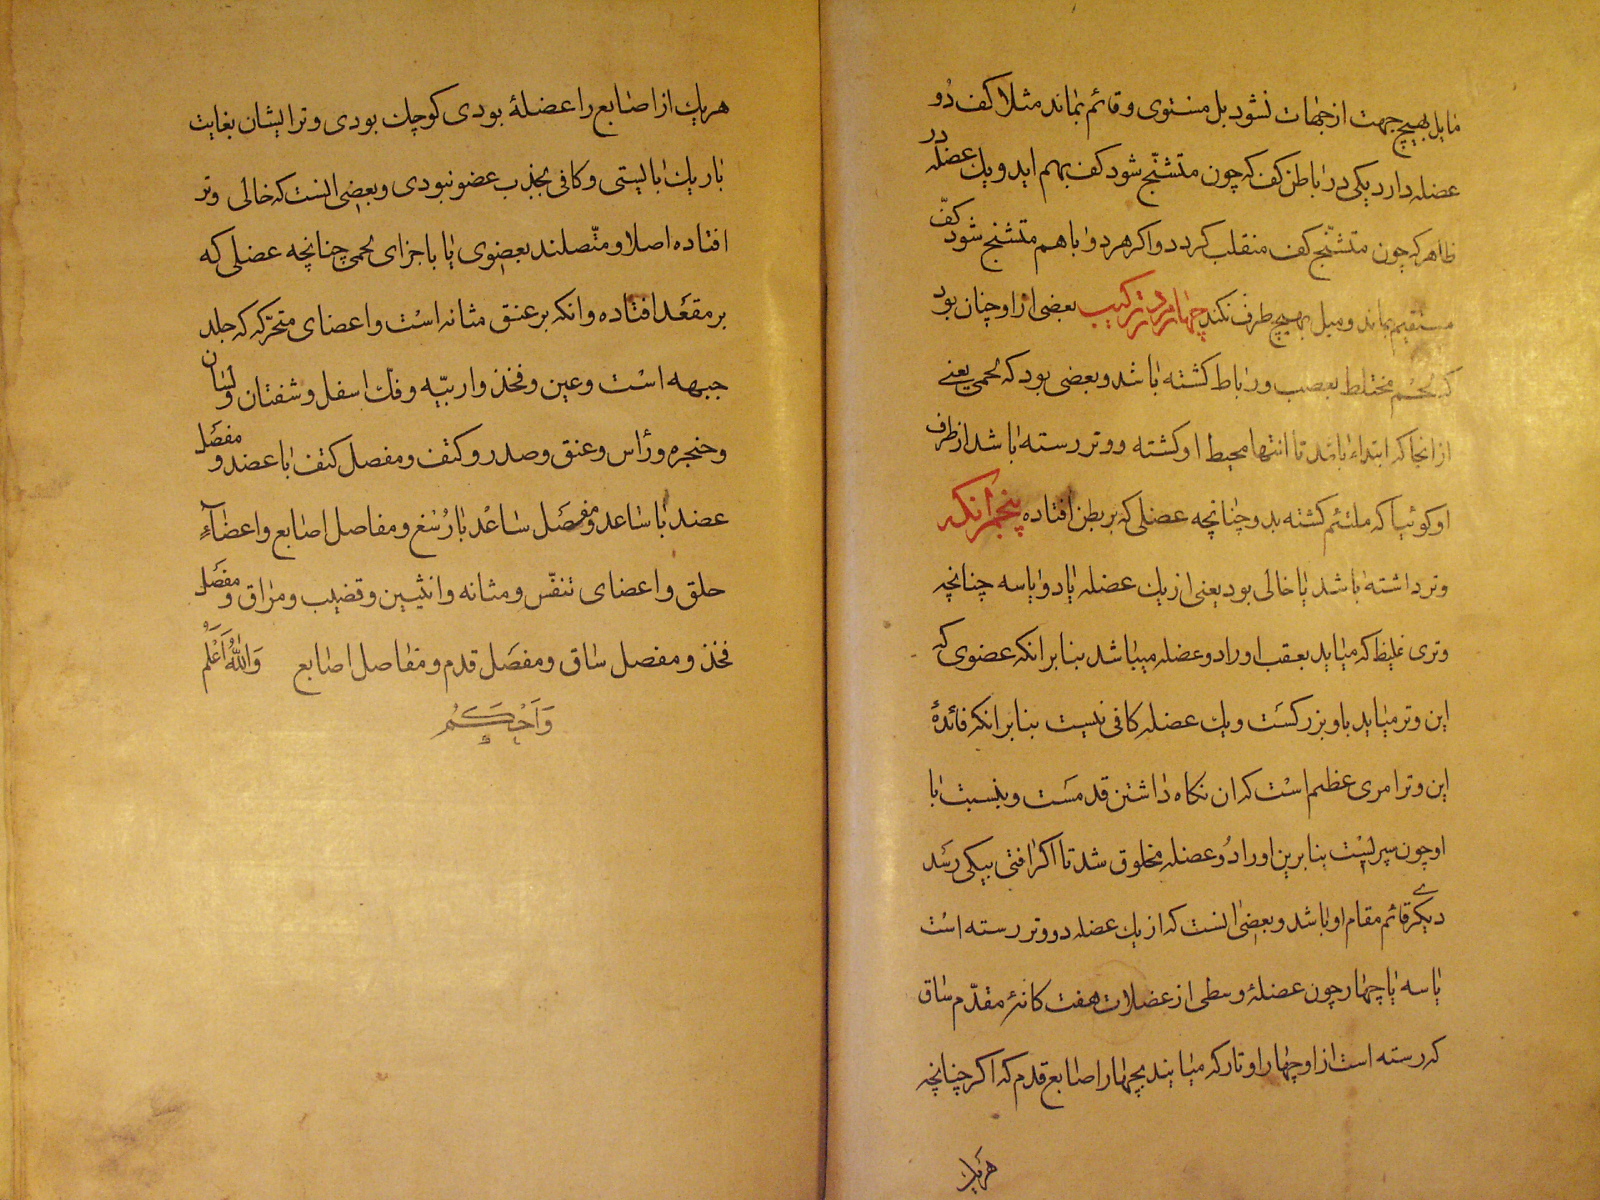 مایل بهیچ جهت از جهات نشود بل مستوی و قائم بماند مثلا کف دو
عضله دارد یکی در باطن کف که چون متشنّج شود کف بهم اید و یک عضله در
ظاهر که چون متشنّج کف منقلب کردد و اکر هر دو با هم متشنج شود کفّ
مستقیم بماند و میل بهیچ طرف نکند چهارم در ترکیب بعضی از او چنان بود
که لحم مختلط بعصب و رباط کشته باشد و بعضی بود که لحمی یعنے
از انجا که ابتداء باشد تا انتها محیط او کشته و وتر رسته باشد از طرف
او کوئیا که ملتئم کشته بدو چنانچه عضلی که بر بطن افتاده پنجم انکه
وتر داشته باشد یا خالی بود یعنی از یک عضله یا دو یا سه چنانچه
وتری غلیظ که میاید بعقب او را دو عضله میباشد بنابر انکه عضوی که
این وتر میاید باو بزرکست و یک عضله کافی نیست بنابر انکه فائدهٔ
این وتر امری عظیم است که ان نکاه داشتن قدمست و بنسبت با
او چون سپریست بنابرین او را دو عضله مخلوق شد تا اکر افتی بیکی رسد
دیکرے قائم مقام او باشد و بعضی انست که از یک عضله دو وتر رسته است
یا سه یا چهار چون عضلهٔ وسطی از عضلات هفت کانهٔ مقدّم ساق
که رسته است از او چهار اوتار که میایند بچهار اصابع قدم که اکر چنانچه
هریک
هریک از اصابع را عضلهٔ بودی کوچک بودی و وتر ایشان بغایت
باریک بایستی و کافی بجذب عضو نبودی و بعضی انست که خالی وتر
افتاده اصلا و متّصلند بعضوی یا با اجزای لحمی چنانچه عضلی که
بر مقعد افتاده و انکه بر عنق مثانه است و اعضای متحرّکه که جلد
جبهه است و عین و فخذ و اربیّه و فک اسفل و شفتان و لسان
و حنجره و رأس و عنق و صدر و کتف و مفصل کتف با عضد و مفصل
عضد با ساعد و مفصل ساعد با رسغ و مفاصل اصابع و اعضاء
حلق و اعضای تنفّس و مثانه و انثیین و قضیب و مراق و مفصل
فخذ و مفصل ساق و مفصل قدم و مفاصل اصابع والله اعلم
واحکم